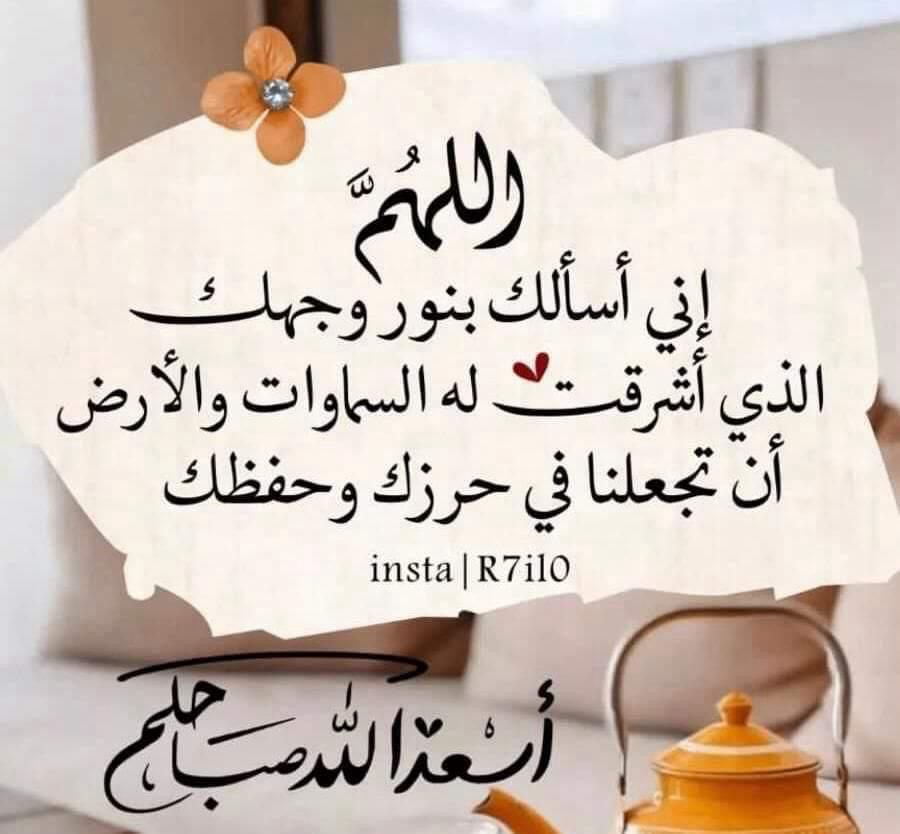 اللهُمَّ
إني أسألك بنور وجهك
الذي أشرقت له السماوات والأرض
أن تجعلنا في حرزك وحفظك
insta|R7il0
أسْعد الله صباحكم